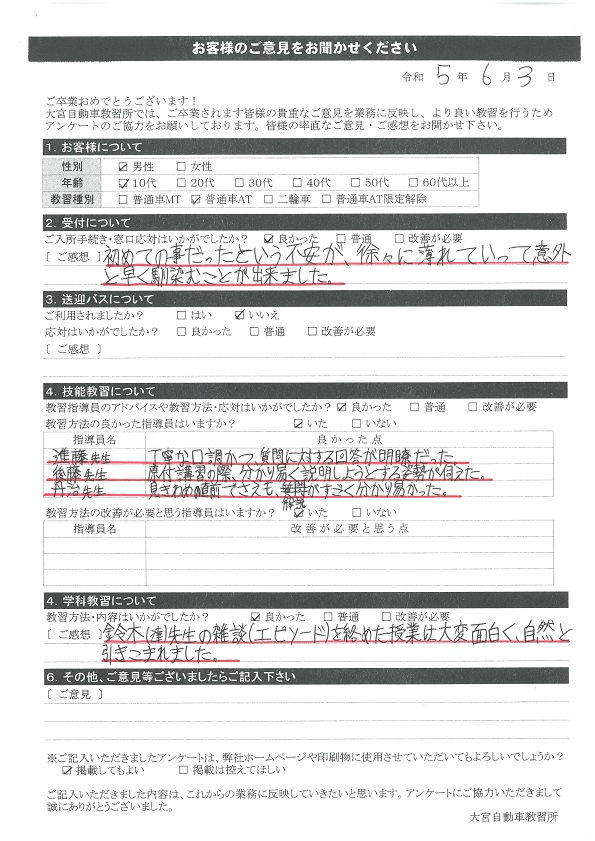 お客様のご意見をお聞かせください
令和 5 年 6 月 3 日
ご卒業おめでとうございます！
大宮自動車教習所では、ご卒業されます皆様の貴重なご意見を業務に反映し、より良い教習を行うため
アンケートのご協力をお願いしております。皆様の率直なご意見・ご感想をお聞かせ下さい。
1. お客様について
性別 ☑ 男性 □ 女性
年齢 ☑ 10代 □ 20代 □ 30代 □ 40代 □ 50代 □ 60代以上
教習種別 □ 普通車MT ☑ 普通車AT □ 二輪車 □ 普通車AT限定解除
2. 受付について
ご入所手続き・窓口応対はいかがでしたか？ ☑ 良かった □ 普通 □ 改善が必要
〔 ご感想 〕初めての事だったという不安が、徐々に薄れていって意外
と早く馴染むことが出来ました。
3. 送迎バスについて
ご利用されましたか？ □ はい ☑ いいえ
応対はいかがでしたか？ □ 良かった □ 普通 □ 改善が必要
〔 ご感想 〕
4. 技能教習について
教習指導員のアドバイスや教習方法・応対はいかがでしたか？ ☑ 良かった □ 普通 □ 改善が必要
教習方法の良かった指導員はいますか？ ☑ いた □ いない
指導員名 良かった点
進藤先生 丁寧な口調かつ、質問に対する回答が明瞭だった。
後藤先生 原付講習の際、分かり易く説明しようとする姿勢が伺えた。
丹治先生 見きわめ直前でさえも、解説がすごく分かり易かった。
教習方法の改善が必要と思う指導員はいますか？ ☑ いた □ いない
指導員名 改善が必要と思う点
4. 学科教習について
教習方法・内容はいかがでしたか？ ☑ 良かった □ 普通 □ 改善が必要
〔 ご感想 〕鈴木(達)先生の雑談(エピソード)を絡めた授業は大変面白く、自然と
引きこまれました。
6. その他、ご意見等ございましたらご記入下さい
〔 ご意見 〕
※ご記入いただきましたアンケートは、弊社ホームページや印刷物に使用させていただいてもよろしいでしょうか？
☑ 掲載してもよい □ 掲載は控えてほしい
ご記入いただきました内容は、これからの業務に反映していきたいと思います。アンケートにご協力いただきまして
誠にありがとうございました。
大宮自動車教習所